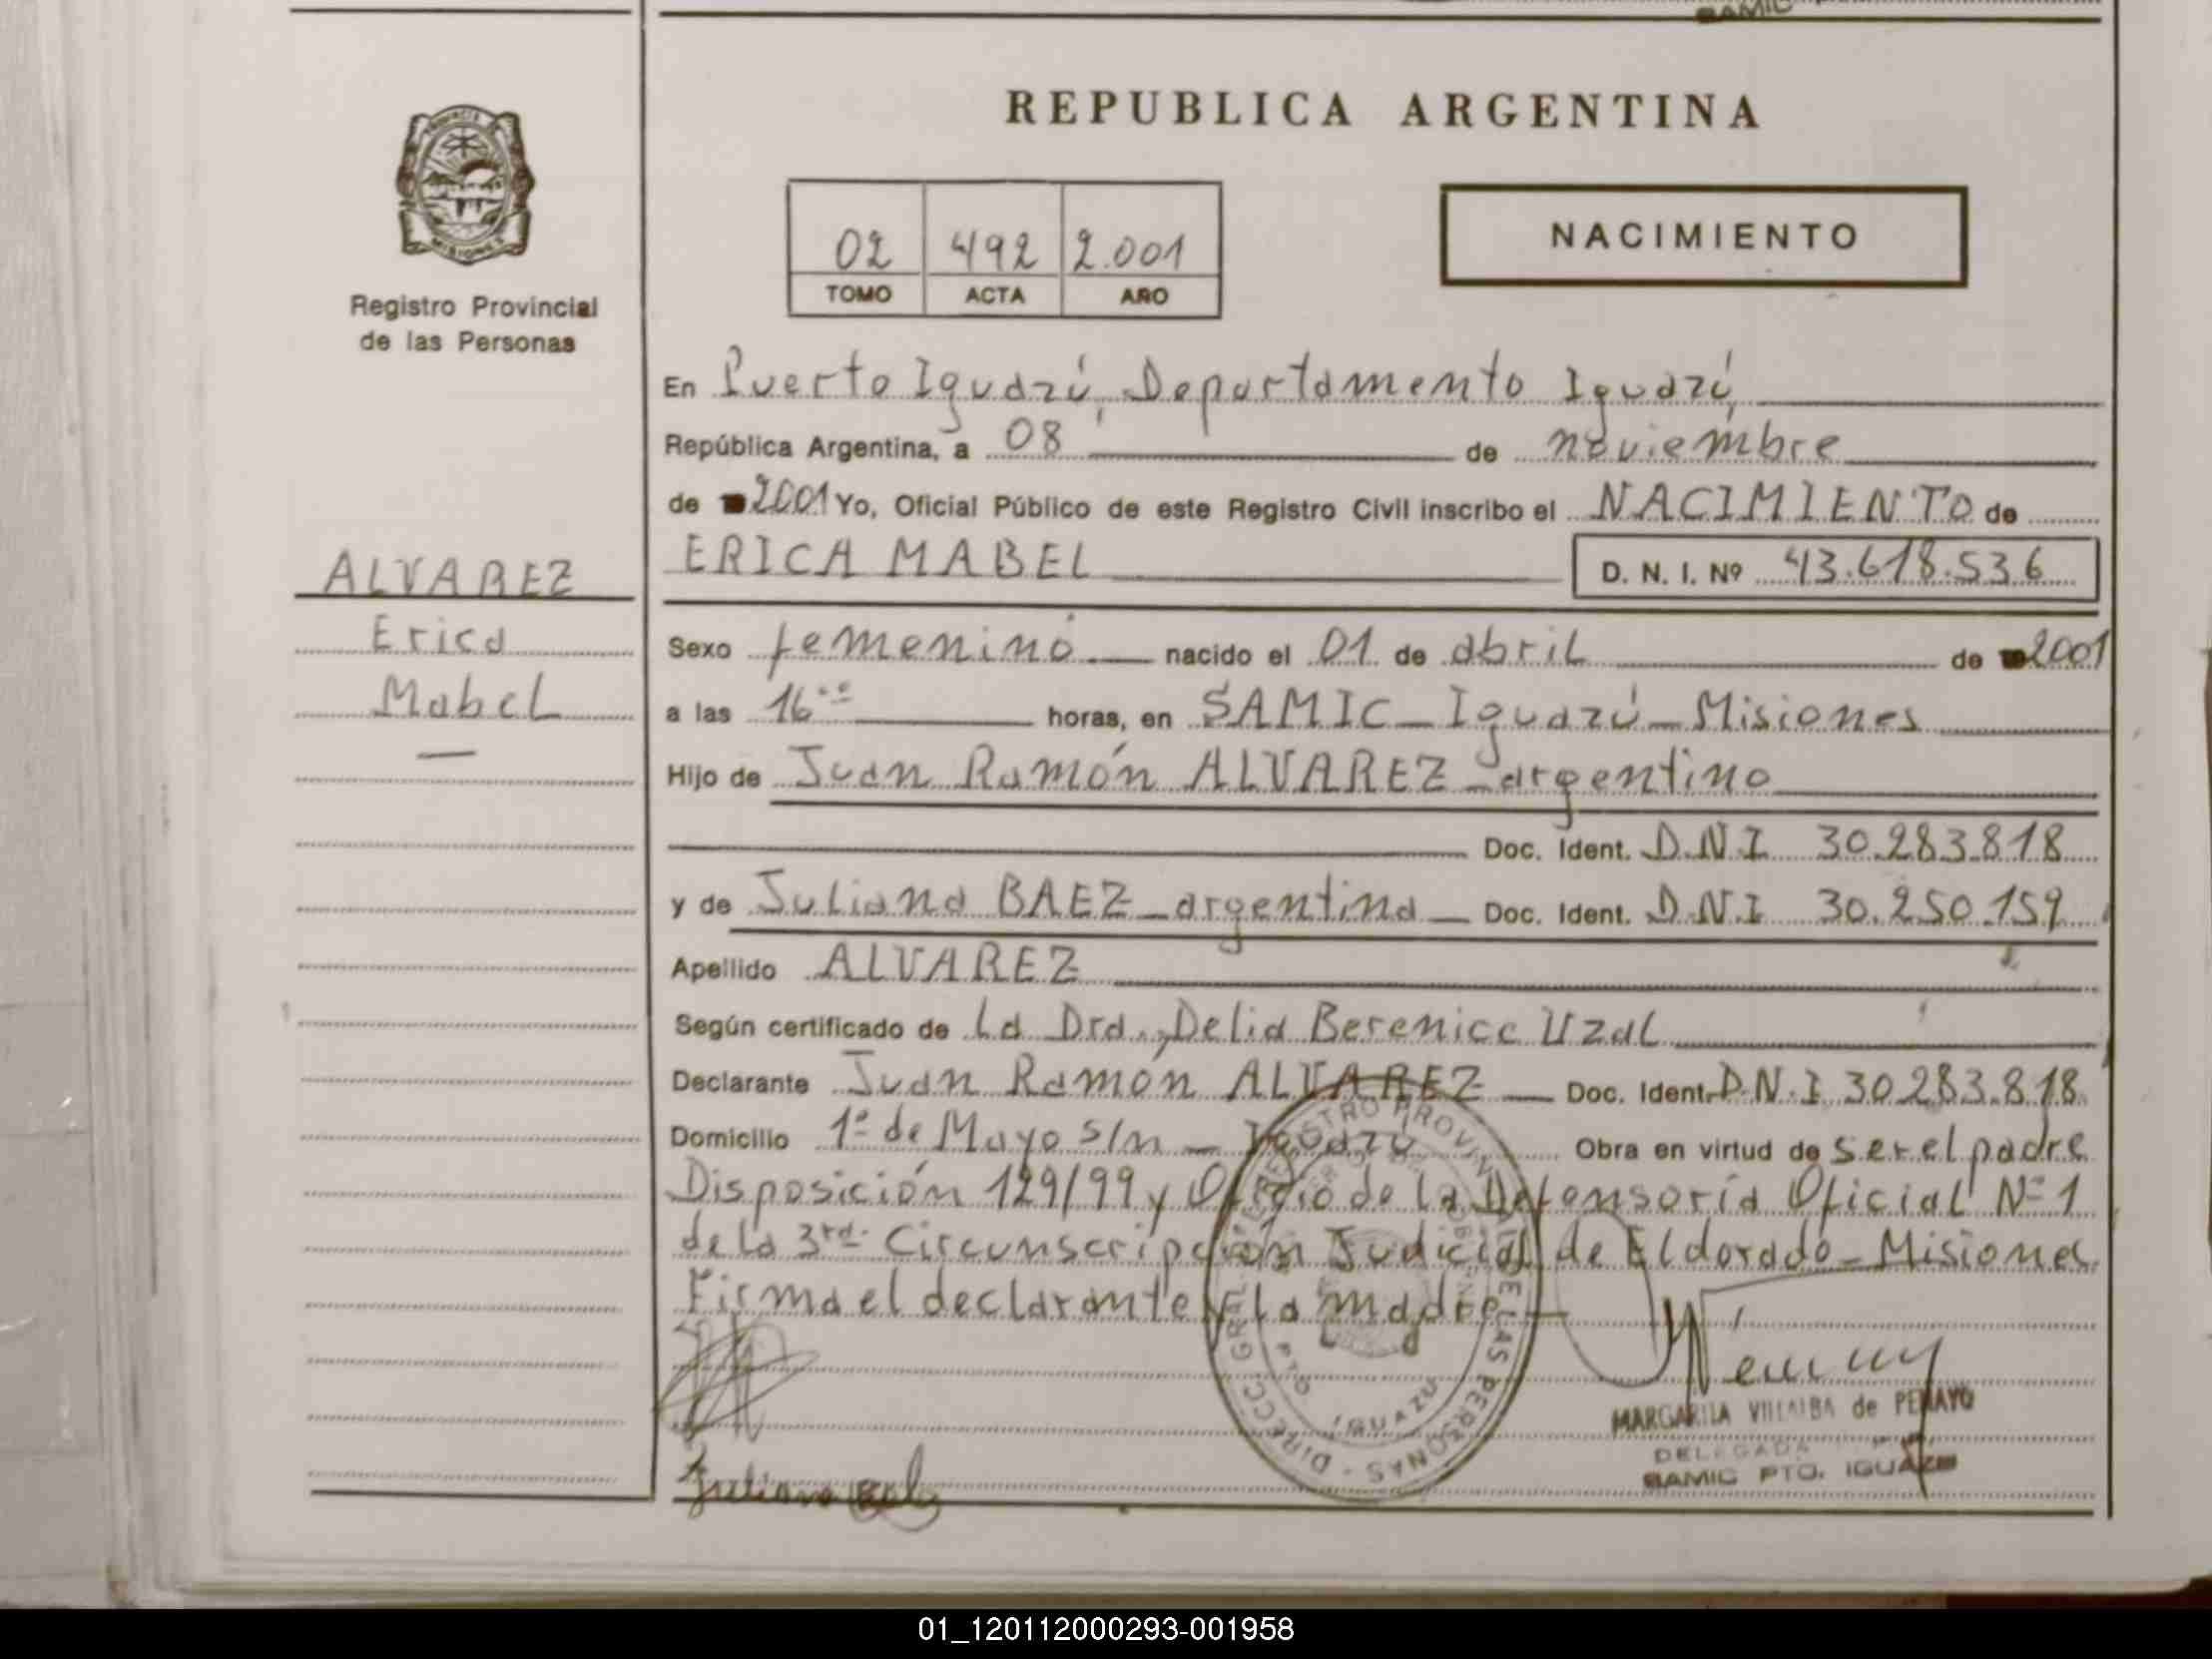 SAMIC
REPUBLICA ARGENTINA
PROVINCIA DE MISIONES
Registro Provincial
de las Personas
02 492 2.001
TOMO ACTA AÑO
NACIMIENTO
En Puerto Iguazú, Departamento Iguazú,
República Argentina, a 08 de noviembre
de 2001 Yo, Oficial Público de este Registro Civil inscribo el NACIMIENTO de
ERICA MABEL D. N. I. Nº 43.618.536
ALVAREZ
Erica
Mabel
Sexo femenino nacido el 01 de abril de 2001
a las 16 horas, en SAMIC - Iguazú - Misiones
Hijo de Juan Ramón ALVAREZ - argentino
Doc. Ident. D.N.I 30.283.818
y de Juliana BAEZ - argentina - Doc. Ident. D.N.I 30.250.159
Apellido ALVAREZ
Según certificado de la Dra., Delia Berenice Uzal
Declarante Juan Ramon ALVAREZ - Doc. Ident. D.N.I 30.283.818
Domicilio 1º de Mayo s/n - Iguazú Obra en virtud de ser el padre
Disposición 129/99 y Oficio de la Defensoría Oficial Nº 1
de la 3ra. Circunscripción Judicial de Eldorado - Misiones
Firma el declarante y la madre -
DIRECC. GRAL. DEL REGISTRO PROVINCIAL DE LAS PERSONAS
PTO. IGUAZU
MARGARITA VILLALBA de PENAYO
DELEGADA
SAMIC PTO. IGUAZU
Juliana Baez
01_120112000293-001958